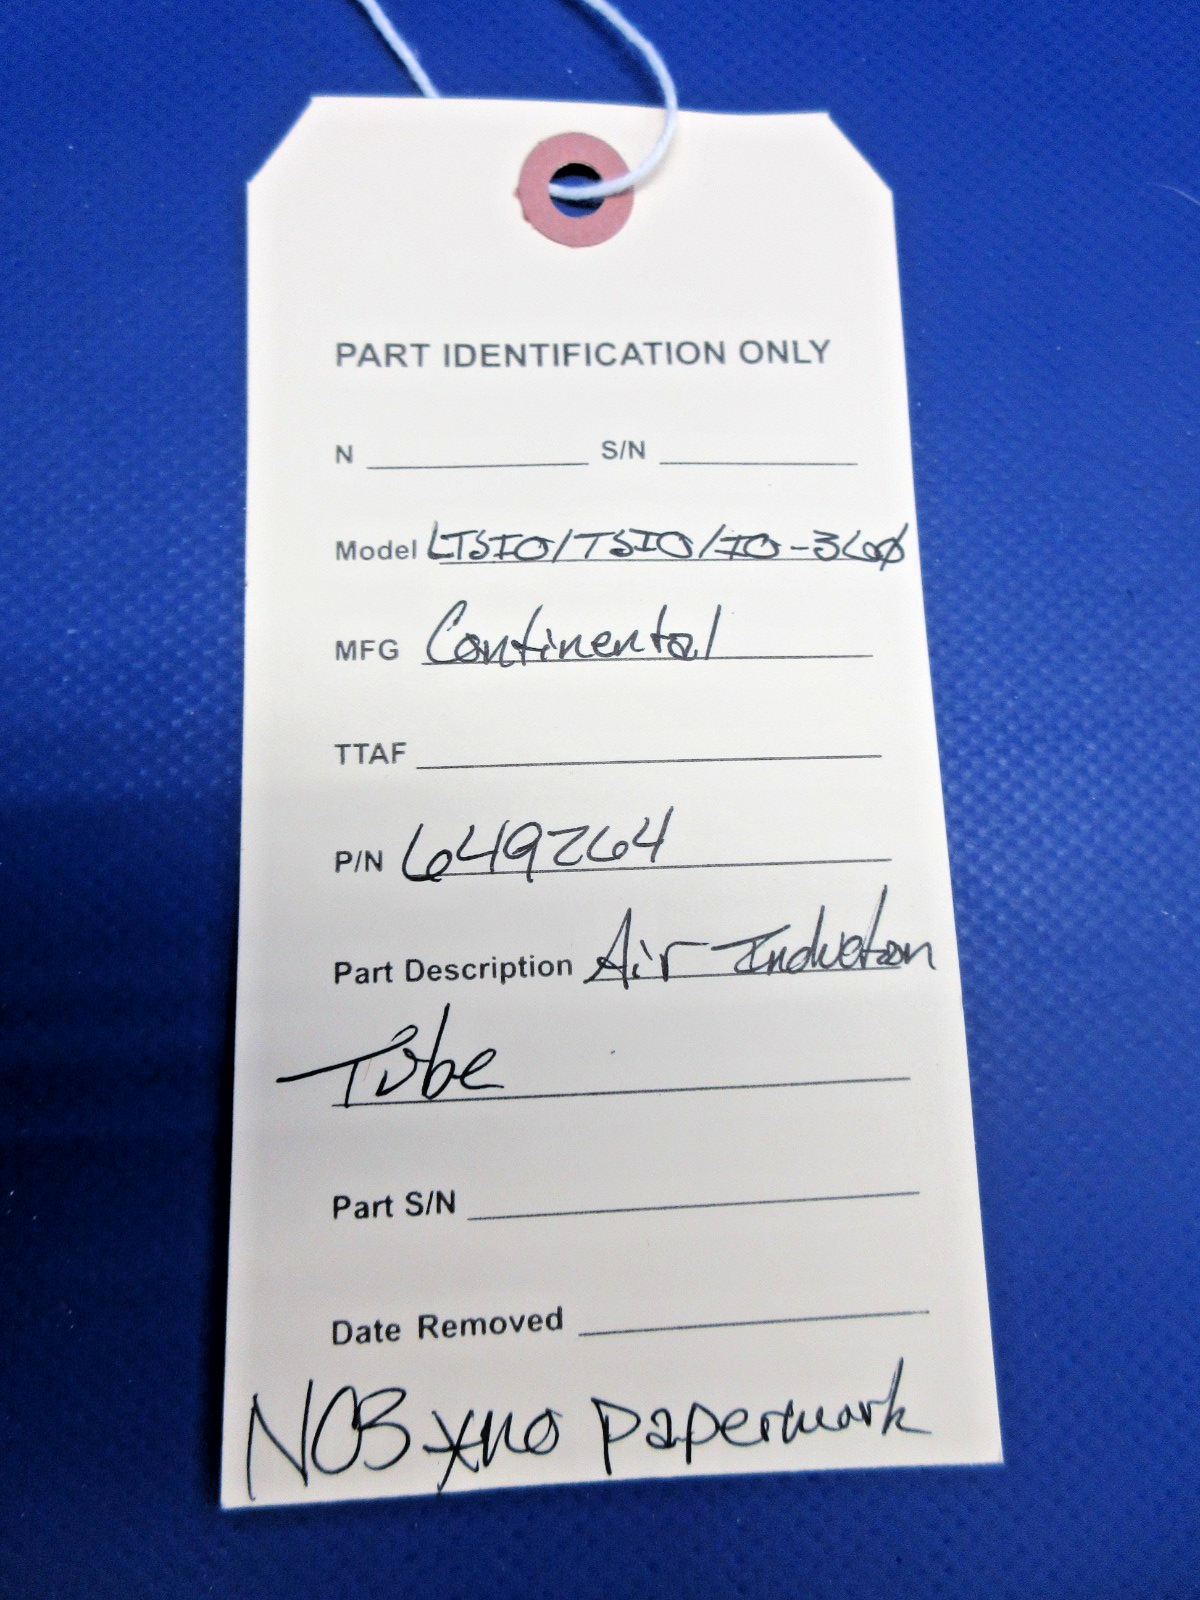 PART IDENTIFICATION ONLY
N S/N
Model LTSIO/TSIO/IO-360
MFG Continental
TTAF
P/N 649264
Part Description Air Induction
Tube
Part S/N
Date Removed
NOS *no paperwork